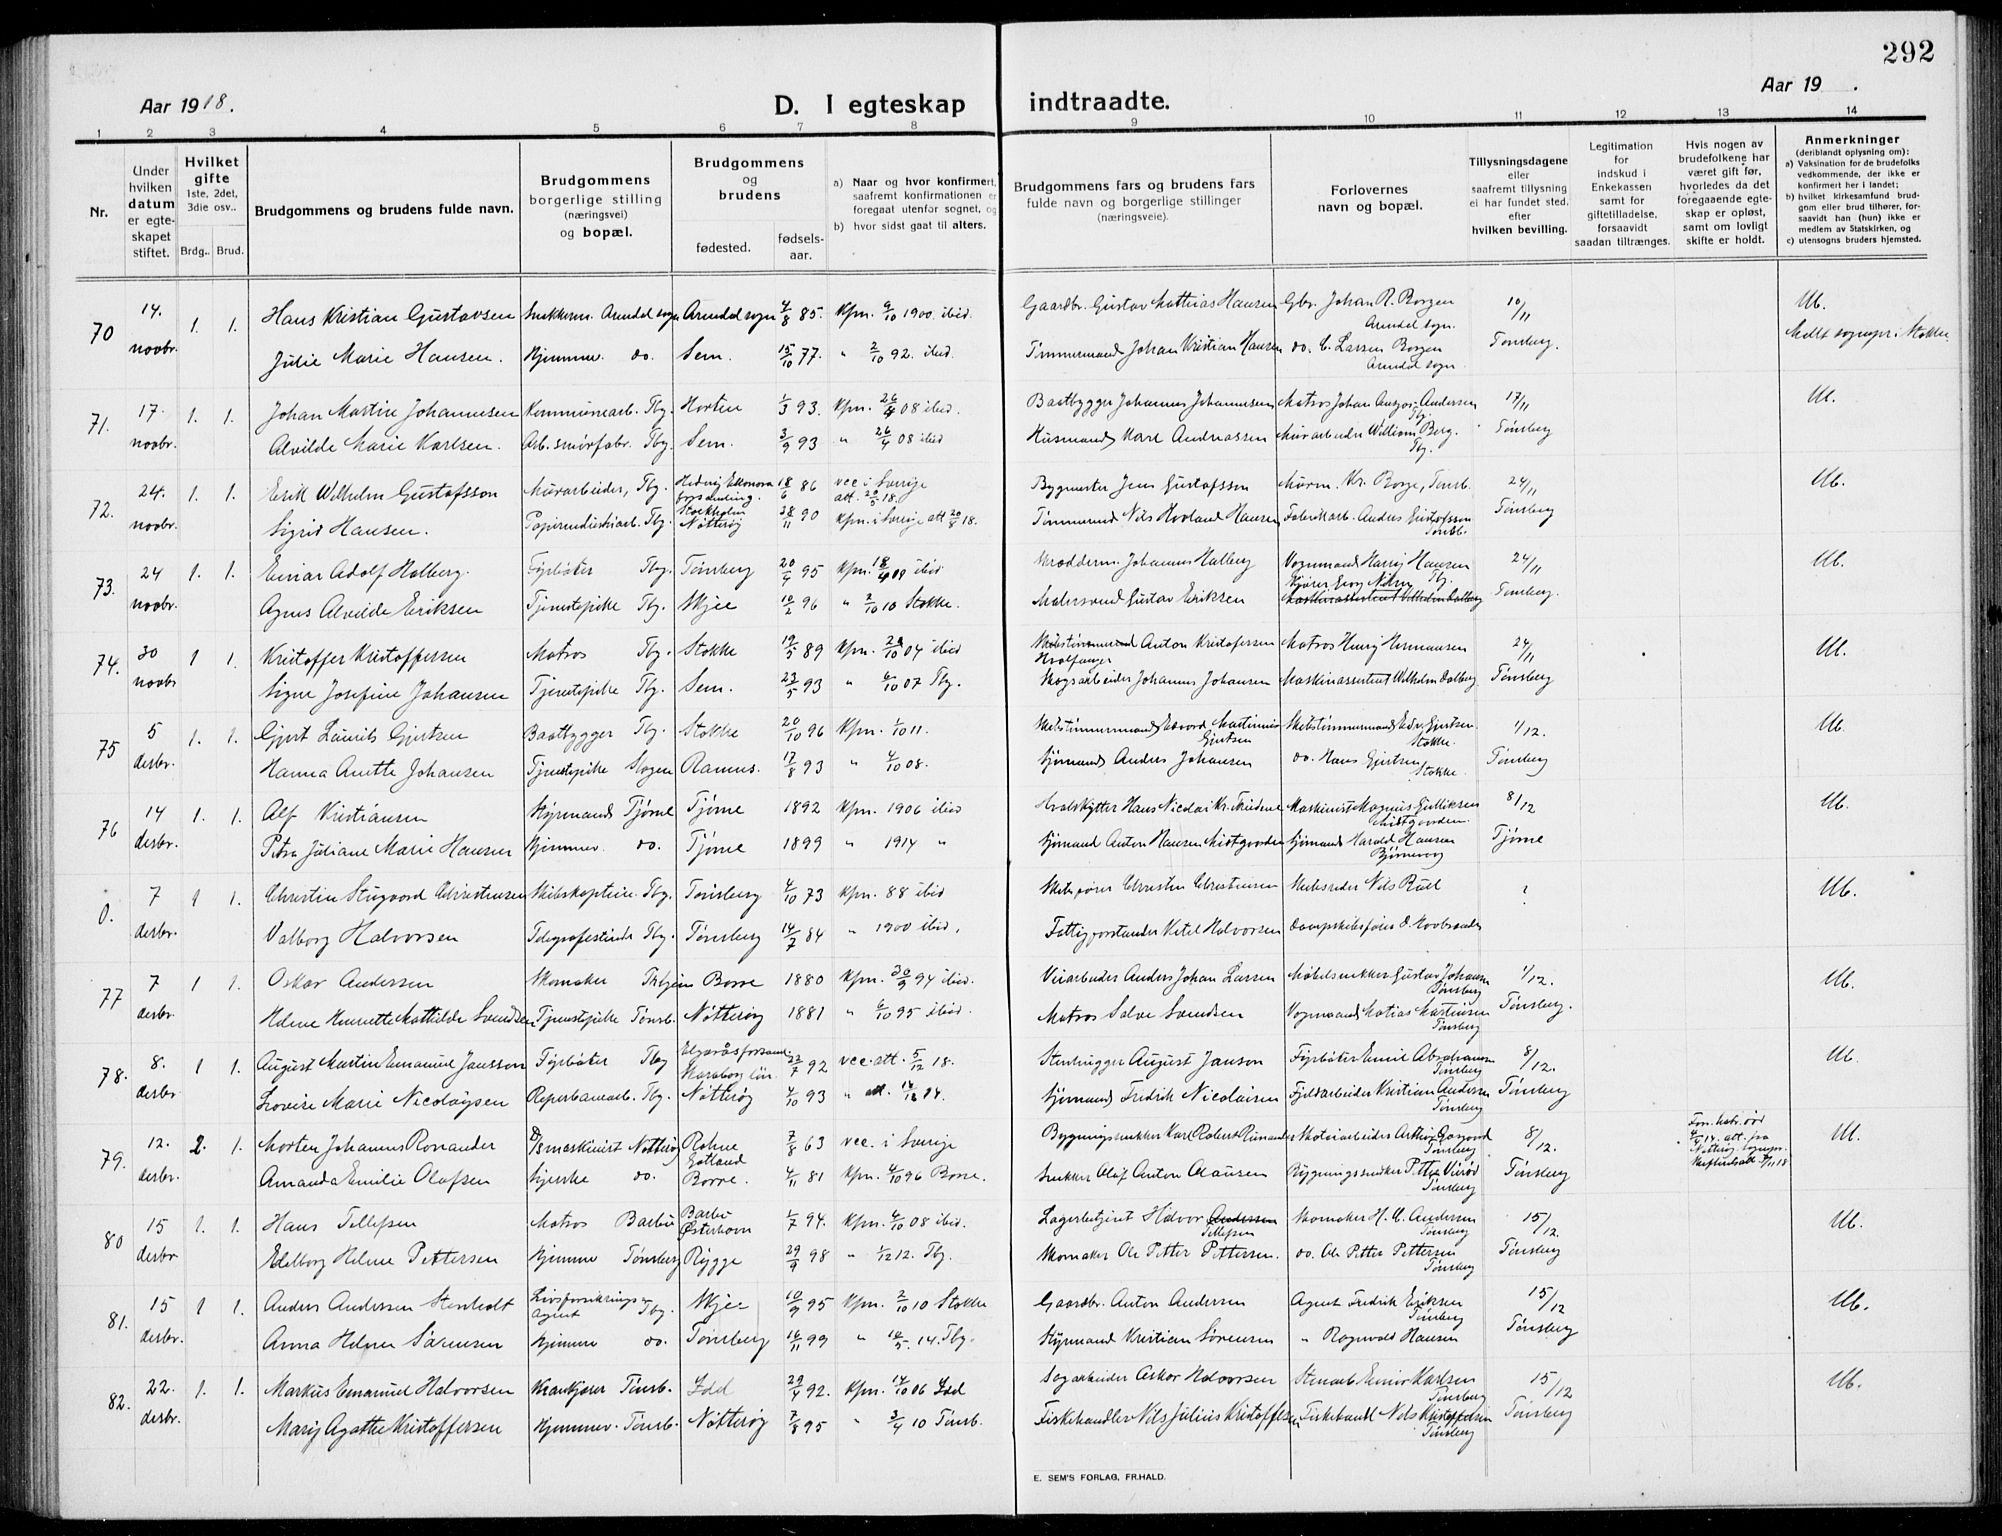 292
Aar 1918.
D. I egteskap indtraadte.
Aar 19 .
1 2 3 4 5 6 7 8 9 10 11 12 13 14
Nr.
Under hvilken datum er egteskapet stiftet.
Hvilket gifte 1ste, 2det, 3die osv..
Brdg.. Brud.
Brudgommens og brudens fulde navn.
Brudgommens borgerlige stilling (næringsvei) og bopæl.
Brudgommens og brudens
fødested.
fødsels-aar.
a) Naar og hvor konfirmert, saafremt konfirmationen er foregaat utenfor sognet, og
b) hvor sidst gaat til alters.
Brudgommens fars og brudens fars fulde navn og borgerlige stillinger (næringsveie).
Forlovernes navn og bopæl.
Tillysningsdagene eller saafremt tillysning ei har fundet sted. efter hvilken bevilling.
Legitimation for indskud i Enkekassen samt for giftetilladelse, forsaavidt saadan tiltrænges.
Hvis nogen av brudefolkene har været gift før, hvorledes da det foregaaende egteskap er opløst, samt om lovligt skifte er holdt.
Anmerkninger (deriblandt oplysning om):
a) Vaksination for de brudefolks vedkommende, der ikke er konfirmert her i landet;
b) hvilket kirkesamfund brudgom eller brud tilhører, forsaavidt han (hun) ikke er medlem av Statskirken, og
c) utensogns bruders hjemsted.
70 14. novbr. 1. 1. Hans Kristian Gustavsen Snekkerm. Arendal sogn Arendal sogn 4/8 85. Kfm. 9/10 1900. ibid. Gaardbr. Gustav Mathias Hansen Gbr. Johan R. Borgen Arendal sogn. 10/11 Ub.
Julie Marie Hansen. Hjemmev. do. Sem. 15/10 77. " 2/10 92. ibid. Tømmermand Johan Kristian Hansen do. C. Larsen Borgen Arendal sogn Tønsberg. Meldt sognepr. i Stokke
71. 17 novbr. 1. 1. Johan Martin Johannesen Kommunearb. Tbg. Horten 1/3 93. Kfm. 26/4 08 ibid. Baatbygger Johannes Johannesen Matros Johan Andersen Tbg. 17/11 Ub.
Alvilde Marie Karlsen. Arb. smørfabr. Tbg. Sem. 3/9 93 " 26/4 08 ibid Husmand Karl Andreassen Murarbeider William Berg. Tbg. Tønsberg
72. 24. novbr. 1. 1. Erik Wilhelm Gustafsson Murarbeider, Tbg. Hedvig Eleonora forsamling. Stockholm 18/6 86 vcc i Sverige att. 20/5 18. Bygmester Jens Gustafsson Murm. Kr. Borge, Tønsb. 24/11 Ub.
Sigrid Hansen. Tbg. Nøtterøy 28/11 90 Kfm. i Sverige att 20/8 18. Tømmermd Nils Hovland Hansen Fabrikarb. Anders Gustafsson Tønsb. Tønsberg
73. 24 novbr. 1. 1. Einar Adolf Halberg. Fyrbøter Tbg. Tønsberg 20/4 95 Kfm. 18/4 09 ibid Skrædderm. Johannes Halberg Vognmand Harry Hansen Tbg. 24/11 Ub.
Agnes Alvilde Eriksen Tjenestepike Tbg. Skjee 10/2 96 " 2/10 10 Stokke. Malersvend Gustav Eriksen Maskinassistent Wilhelm Dalberg Tønsberg.
74. 30 novbr 1 1. Kristoffer Kristoffersen Matros Tbg. Stokke 19/5 89 Kfm. 23/10 04 ibid Anton Kristofersen Hvalfanger Matros Henry Hermansen 24/11 Ub.
Signe Josefine Johansen Tjenestepike Tbg. Sem. 23/5 93 " 6/10 07 Tbg. Skogsarbeider Johannes Johansen Maskinassistent Wilhelm Dalberg Tønsberg
75 5 desbr. 1. 1. Gjert Laurits Gjertsen Baatbygger Tbg. Stokke 20/10 96 Kfm. 1/10 11. Skibstømmermand Edvard Martinius Gjertsen Skibstømmermand Edv. Gjertsen Stokke. 1/12. Ub.
Hanna Anette Johansen Tjenestepike Ramnes. 17/8 93 " 4/10 08. Sjømand Anders Johansen do. Hans Gjertsen Stokke. Tønsberg
76 14 desbr. 1. 1. Alf Kristiansen Styrmand Tjøme Tjøme 1892 Kfm. 1906 ibid Hvalskytter Hans Nicolai Kr. Maskinist Magnus Gulliksen 8/12 Ub.
Petra Juliane Marie Hansen Hjemmev. do. Tjøme 1899 " 1914 " Sjømand Anton Hansen Sjømand Harald Hansen Tjøme
0. 7 desbr. 1 1. Christin Christensen Skibskaptein. Tbg. Tønsberg 4/10 73 Kfm. 88 ibid Skibsfører Christen Christensen Skibsreder Nils Ruel ? Ub.
Valborg Halvorsen Telegrafistinde Tbg. Tønsberg 14/7 84 " 1900 ibid, Fattigforstander Ketel Halvorsen Dampskibsfører
77 7 desbr 1 1. Oskar Andersen Skomaker Borre 1880 Kfm. 30/9 94 ibid. Veiarbeider Anders Johan Larsen Møbelsnekker Gustav Johansen Tønsberg 1/12. Ub.
Helene Henriette Mathilde Svendsen Tjenestepike Tønsb. Nøtterøy 1881 " 6/10 95 ibid. Matros Salve Svendsen Vognmand Matias Martinsen Tønsberg Tønsberg.
78. 8. desbr. 1 1. August Martin Emanuel Jansson Fyrbøter Tbg Skaraborg län. 22/7 92 vcc. att. 5/12 18. Stenhugger August Janson Fyrbøter Emil Abrahamsen Tønsberg 8/12. Ub.
Lovise Marie Nicolaysen Reperbanearb. Tbg. Nøtterøy 4/10 93 " att. Sjømand Fredrik Nicolaisen Fjeldarbeider Kristian Andersen Tønsberg Tønsberg
79. 12. desbr. 2. 1. Morten Johannes Ronander Maskinist Nøtterøy Rohne Gotland 7/8 63 vcc. i Sverige Bygningssnekker Karl Robert Motorarbeider Arthur Tønsberg 8/12. Ub.
Amanda Emilie Olafsen Syerske do. Borre. 4/11 81 Kfm. 4/10 96 Borre. Snekker Olaf Anton Olausen Bygningssnekker Petter Tønsberg Tønsberg
80 15 desbr 1. 1. Hans Tellefsen Matros Barbu Barbu Østerhavn 1/7 94. Kfm. 4/10 08 ibid. Lagerbetjent Halvor Andersen Tellefsen Skomaker H. C. Andersen Tønsberg 15/12. Ub.
Edelborg Helene Pettersen Hjemme Tønsberg Rygge 29/9 98 " 1/12 12. Tbg. Skomaker Ole Petter Pettersen. do. Ole Petter Pettersen Tønsberg Tønsberg
81. 15 desbr. 1 1. Anders Andersen Stenholt Livsforsikringsagent Tbg. Skjee 10/9 95 Kfm. 2/10 10 Stokke Gaardbr. Anton Andersen Agent Fredrik Eriksen Tønsberg 15/12 Ub.
Anna Helene Sørensen Hjemme do. Tønsberg 16/11 99 " 14. Tbg. Styrmand Kristian Sørensen " Ragnvald Hansen Tønsberg
82. 22. desbr. 1. 1. Markus Emanuel Halvorsen Krankjører Tønsb. Idd 29/4 92. Kfm. 14/10 06 Idd Sagarbeider Oskar Halvorsen Stenarb. Einar Karlsen Tønsberg 15/12 Ub.
Mary Agathe Kristoffersen Hjemmev. Tønsb. Nøtterøy 7/8 95 " 3/4 10 Tønsb. Fiskehandler Nils Julius Kristoffersen Fiskehandl Nils Kristoffersen Tønsberg Tønsberg
E. SEM'S FORLAG, FR.HALD.